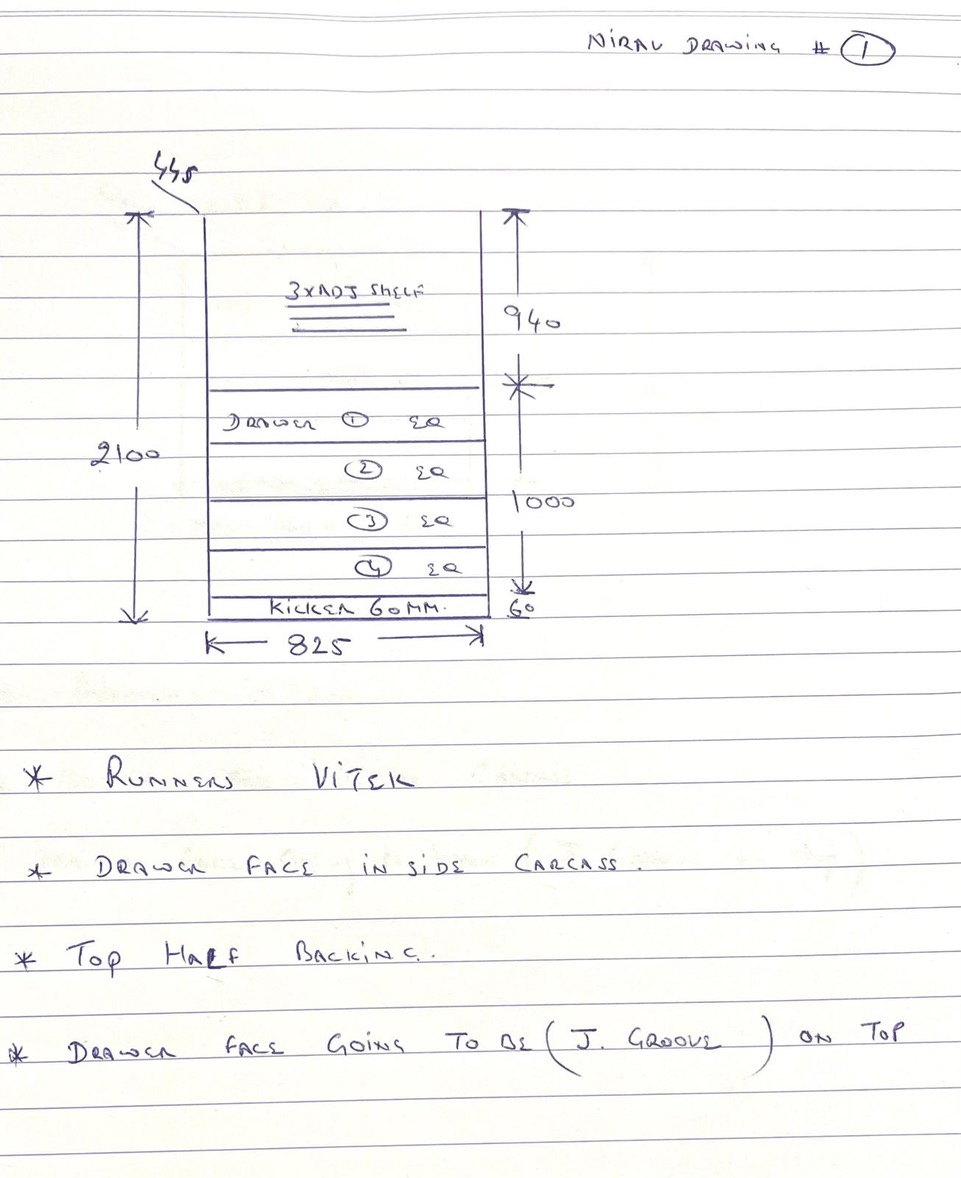 NIRAV DRAWING # 1
445
3xADJ SHELF
940
DRAWER 1 EQ
2100
2 EQ
1000
3 EQ
4 EQ
KICKER 60MM.
60
825
* RUNNERS VITEK
* DRAWER FACE IN SIDE CARCASS.
* TOP HALF BACKING.
* DRAWER FACE GOING TO BE (J. GROOVE) ON TOP